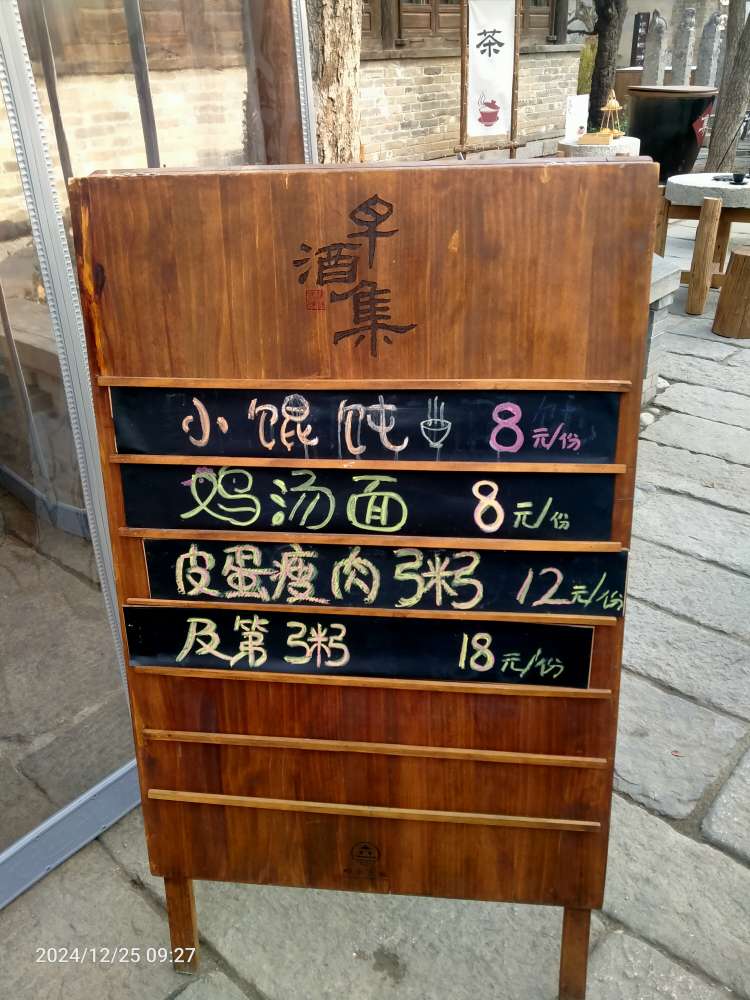 茶
早
酒
集
小馄饨 8元/份
鸡汤面 8元/份
皮蛋瘦肉粥 12元/份
及第粥 18元/份
2024/12/25 09:27